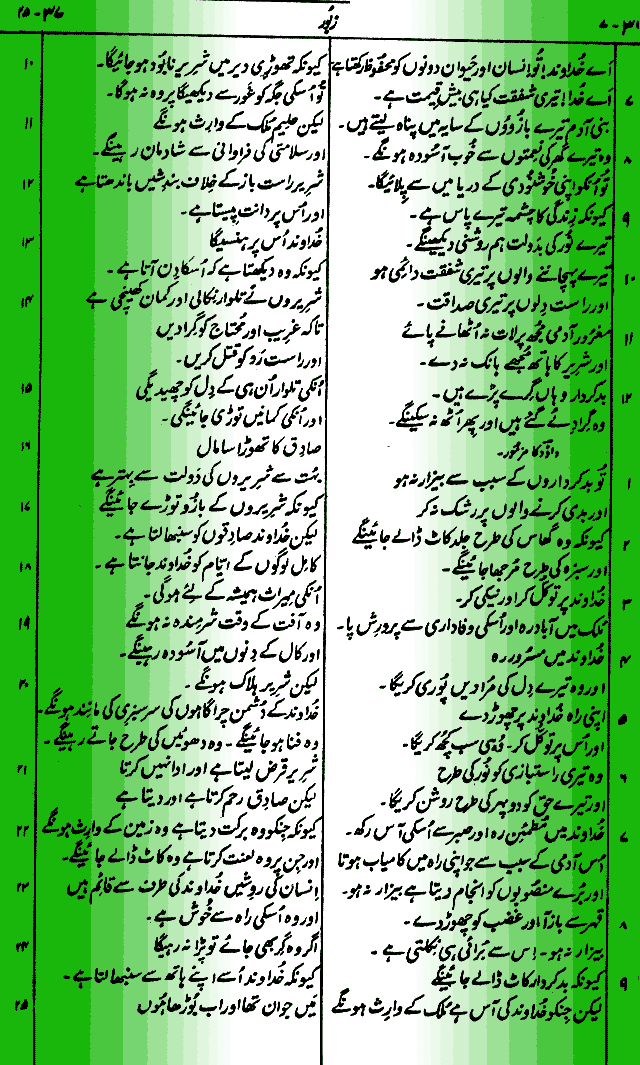 ۲۵ - ۳۷
زبُور
۷ - ۳۶
اَے خُداوند! تُو اِنسان اور حَیوان دونوں کو محفُوظ رکھتا ہے
۷ اَے خُدا! تیری شفقت کیا ہی بیش قِیمت ہے۔
بنی آدم تیرے بازوؤں کے سایہ میں پناہ لیتے ہیں۔
۸ وہ تیرے گھر کی نِعمتوں سے خُوب آسُودہ ہونگے۔
تُو اُنکو اپنی خُوشنُودی کے دریا میں سے پِلائیگا۔
۹ کیونکہ زِندگی کا چشمہ تیرے پاس ہے۔
تیرے نُور کی بدَولت ہم روشنی دیکھینگے۔
۱۰ تیرے پہچاننے والوں پر تیری شفقت دائمی ہو
اور راست دِلوں پر تیری صداقت۔
۱۱ مغرُور آدمی مُجھ پر لات نہ اُٹھانے پائے
اور شرِیر کا ہاتھ مُجھے ہانک نہ دے۔
۱۲ بدکردار وہاں گِرے پڑے ہیں۔
وہ گِرا دِئے گئے ہیں اور پھر اُٹھ نہ سکینگے۔
داؤد کا مزمُور۔
۱ تُو بدکرداروں کے سبب سے بیزار نہ ہو
اور بدی کرنے والوں پر رشک نہ کر
۲ کیونکہ وہ گھاس کی طرح جلد کاٹ ڈالے جائینگے
اور سبزہ کی طرح مُرجھا جائینگے۔
۳ خُداوند پر توکُّل کر اور نیکی کر۔
مُلک میں آباد رہ اور اُسکی وفاداری سے پرورِش پا۔
۴ خُداوند میں مسرُور رہ
اور وہ تیرے دِل کی مُرادیں پُوری کریگا۔
۵ اپنی راہ خُداوند پر چھوڑ دے
اور اُس پر توکُّل کر۔ وُہی سب کُچھ کریگا۔
۶ وہ تیری راستبازی کو نُور کی طرح
اور تیرے حق کو دوپہر کی طرح روشن کریگا۔
۷ خُداوند میں مُطمئِن رہ اور صبر سے اُسکی آس رکھ۔
اُس آدمی کے سبب سے جو اپنی راہ میں کامیاب ہوتا
اور بُرے منصُوبوں کو انجام دیتا ہے بیزار نہ ہو۔
۸ قہر سے باز آ اور غضب کو چھوڑ دے۔
بیزار نہ ہو۔ اِس سے بُرائی ہی نِکلتی ہے۔
۹ کیونکہ بدکردار کاٹ ڈالے جائینگے
لیکن جِنکو خُداوند کی آس ہے مُلک کے وارِث ہونگے
۱۰ کیونکہ تھوڑی دیر میں شرِیر نابُود ہو جائیگا۔
تُو اُسکی جگہ کو غَور سے دیکھیگا پر وہ نہ ہوگا۔
۱۱ لیکن حلیم مُلک کے وارِث ہونگے
اور سلامتی کی فراوانی سے شادمان رہینگے۔
۱۲ شرِیر راست باز کے خِلاف بندِشیں باندھتا ہے
اور اُس پر دانت پِیستا ہے۔
۱۳ خُداوند اُس پر ہنسیگا
کیونکہ وہ دیکھتا ہے کہ اُسکا دِن آتا ہے۔
۱۴ شرِیروں نے تلوار نِکالی اور کمان کھینچی ہے
تاکہ غرِیب اور مُحتاج کو گِرا دیں
اور راست رَو کو قتل کریں۔
۱۵ اُنکی تلوار اُن ہی کے دِل کو چھیدیگی
اور اُنکی کمانیں توڑی جائینگی۔
۱۶ صادِق کا تھوڑا سا مال
بہت سے شرِیروں کی دَولت سے بہتر ہے
۱۷ کیونکہ شرِیروں کے بازُو توڑے جائینگے
لیکن خُداوند صادِقوں کو سنبھالتا ہے۔
۱۸ کامِل لوگوں کے ایّام کو خُداوند جانتا ہے۔
اُنکی مِیراث ہمیشہ کے لِئے ہوگی۔
۱۹ وہ آفت کے وقت شرمِندہ نہ ہونگے
اور کال کے دِنوں میں آسُودہ رہینگے۔
۲۰ لیکن شرِیر ہلاک ہونگے۔
خُداوند کے دُشمن چراگاہوں کی سرسبزی کی مانِند ہونگے۔
وہ فنا ہو جائینگے۔ وہ دھوئیں کی طرح جاتے رہینگے۔
۲۱ شرِیر قرض لیتا ہے اور ادا نہیں کرتا
لیکن صادِق رحم کرتا ہے اور دیتا ہے
۲۲ کیونکہ جِنکو وہ برکت دیتا ہے وہ زمِین کے وارِث ہونگے
اور جِن پر وہ لعنت کرتا ہے وہ کاٹ ڈالے جائینگے۔
۲۳ اِنسان کی روِشیں خُداوند کی طرف سے قائِم ہیں
اور وہ اُسکی راہ سے خُوش ہے۔
۲۴ اگر وہ گِر بھی جائے تو پڑا نہ رہیگا
کیونکہ خُداوند اُسے اپنے ہاتھ سے سنبھالتا ہے۔
۲۵ مَیں جوان تھا اور اب بُوڑھا ہُوں